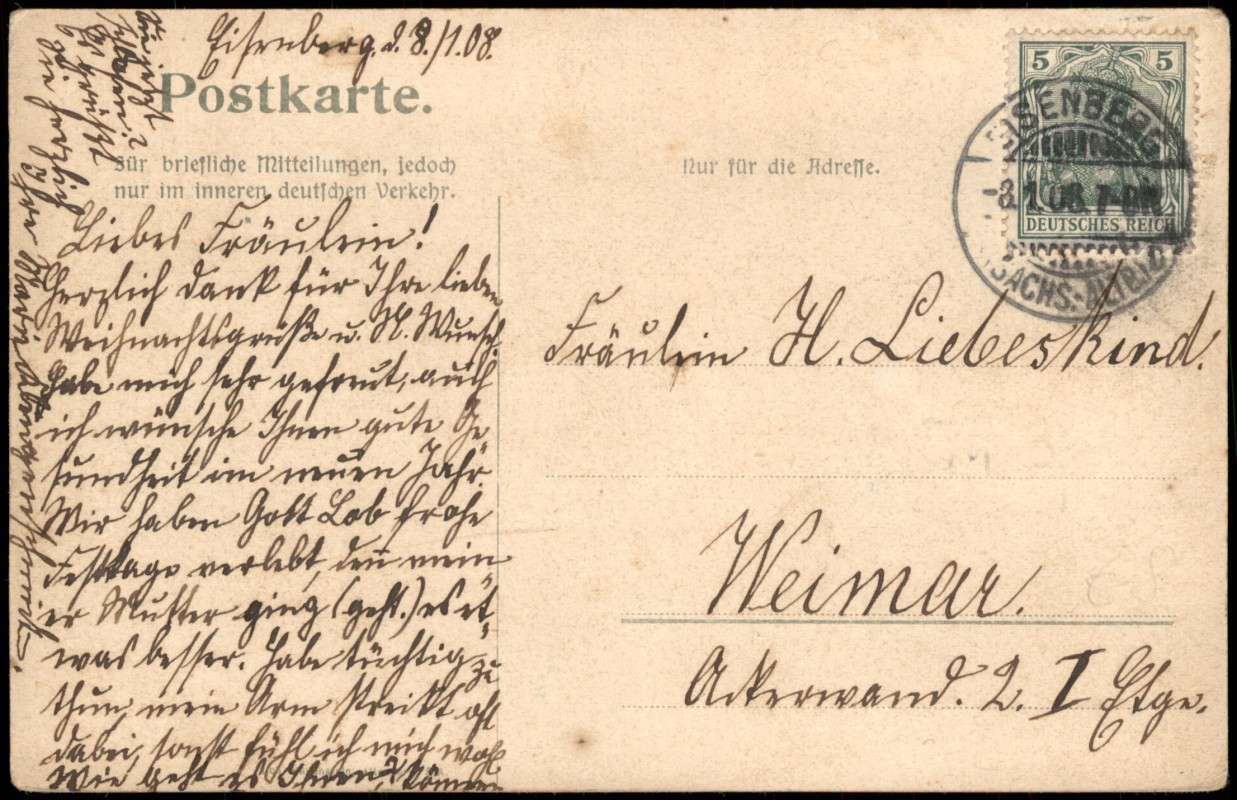 Eisenberg, d. 8./1.08.
Postkarte.
Für briefliche Mitteilungen, jedoch
nur im inneren deutschen Verkehr.
Nur für die Adresse.
5 5
DEUTSCHES REICH
EISENBERG
-8.1.08. 7-8N.
(SACHS.-ALTBG.)
Liebes Fräulein!
Herzlich dank für Ihre lieben
Weihnachtsgrüße u. N. Wunsch.
habe mich sehr gefreut, auch
ich wünsche Ihnen gute Ge-
sundheit im neuen Jahr.
Wir haben Gott Lob frohe
Festtage verlebt, den̄ mein
er Mutter ging (geht.) es et,,
was besser. Habe tüchtig zu
thun, mein Arm streikt oft
dabei, sonst fühl ich mich wohl
Wie geht es Ihnen? können
schlafen?
Es grüßt
Sie herzlich
Ihre Marie
Fräulein H. Liebeskind.
Weimar.
Ackerwand. 2. I Etge.